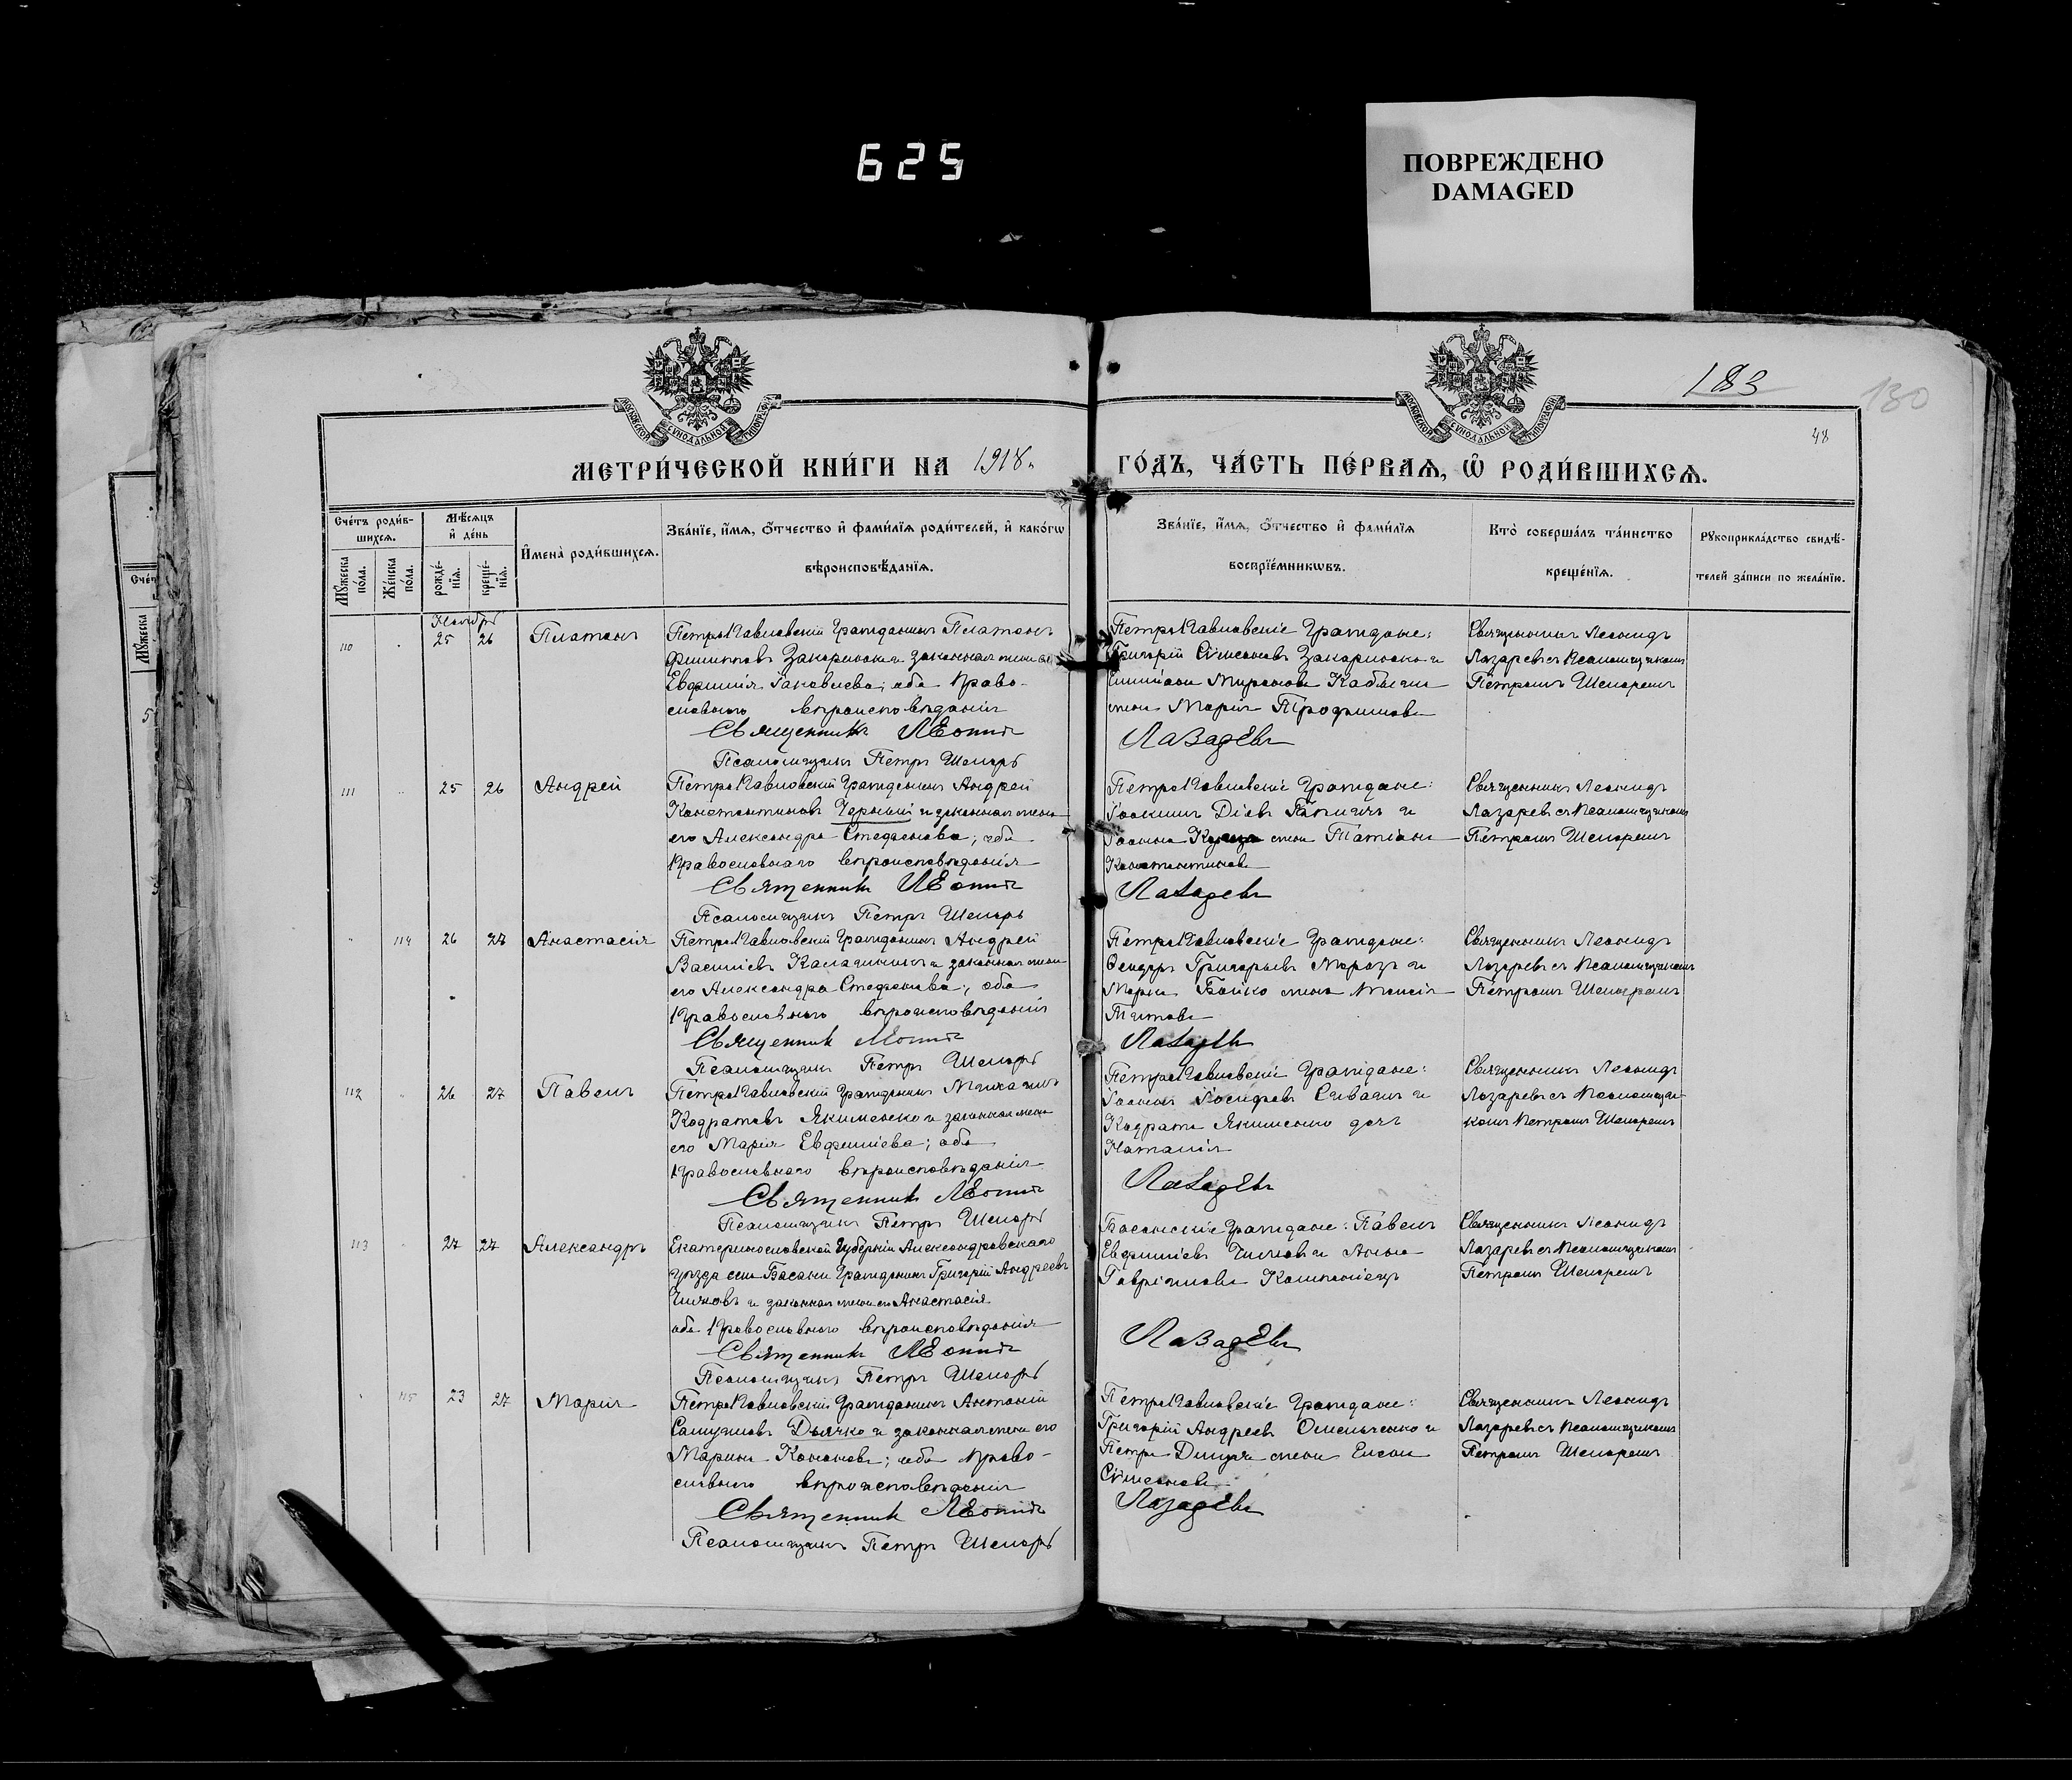 625
ПОВРЕЖДЕНО
DAMAGED
183
130
48
МОСКОВСКОЙ СѴНОДАЛЬНОЙ ТИПОГРАФІИ
МОСКОВСКОЙ СѴНОДАЛЬНОЙ ТИПОГРАФІИ
МЕТРИ́ЧЕСКОЙ КНИ́ГИ НА 1918 ГО́ДЪ, ЧА́СТЬ ПЕ́РВАѦ, Ѡ РОДИ́ВШИХСѦ.
Сче́тъ роди́в-
шихсѧ.
Мꙋ́жеска по́ла.
Же́нска по́ла.
Мѣ́сѧцъ и де́нь
рожде́-нїѧ.
креще́-нїѧ.
И҆мена̀ роди́вшихсѧ.
Зва́нїе, и҆́мѧ, ѻ҆́тчество и҆ фами́лїѧ роди́телей, и҆ како́гѡ
вѣроисповѣ́данїѧ.
Зва́нїе, и҆́мѧ, ѻ҆́тчество и҆ фами́лїѧ
воспрїе́мникѡвъ.
Кто̀ соверша́лъ та́инство
креще́нїѧ.
Рꙋкоприкла́дство свидѣ́-
телей за́писи по жела́нїю.
Ноябрь
110 25 26 Платонъ
ПетроПавловскій Гражданинъ Платонъ
Филиповъ Закарлюка и законная жена его
Евфимія Іаковлева; оба Право-
славнаго вѣроисповѣданія
Священникъ Леонидъ
Псаломщикъ Петръ Шепарь
ПетроПавловскіе Граждане:
Григорій Сѵмеоновъ Закарлюка и
Миронова
жена Марія Трофимова
Лазаревъ
Священникъ Леонидъ
Лазаревъ съ Псаломщикомъ
Петромъ Шепаремъ
111 25 26 Андрей
ПетроПавловскій Гражданинъ Андрей
Константиновъ Черный и законная жена
его Александра Стефанова; оба
Православнаго вѣроисповѣданія
Священникъ Леонидъ
Псаломщикъ Петръ Шепарь
ПетроПавловскіе Граждане:
Іоакимъ и
Іоанна жена Татіана
Константинова
Лазаревъ
Священникъ Леонидъ
Лазаревъ съ Псаломщикомъ
Петромъ Шепаремъ
114 26 27 Анастасія
ПетроПавловскій Гражданинъ Андрей
Василіевъ Калашникъ и законная жена
его Александра Стефанова; оба
Православнаго вѣроисповѣданія
Священникъ Леонидъ
Псаломщикъ Петръ Шепарь
ПетроПавловскіе Граждане:
Ѳеодоръ Григорьевъ Морозъ и
Марка Бойко жена
Титова
Лазаревъ
Священникъ Леонидъ
Лазаревъ съ Псаломщикомъ
Петромъ Шепаремъ
112 26 27 Павелъ
ПетроПавловскій Гражданинъ Михаилъ
Кодратовъ Якименко и законная жена
его Марія Евфиміева; оба
Православнаго вѣроисповѣданія
Священникъ Леонидъ
Псаломщикъ Петръ Шепарь
ПетроПавловскіе Граждане:
Іоаннъ Іосифовъ и
Кодрата Якименко дочь
Наталія
Лазаревъ
Священникъ Леонидъ
Лазаревъ съ Псаломщи-
комъ Петромъ Шепаремъ
113 27 27 Александръ
Екатеринославской Губерніи Александровскаго
уѣзда села Басани Гражданинъ Григорій Андреевъ
и законная жена его Анастасія
оба Православнаго вѣроисповѣданія
Священникъ Леонидъ
Псаломщикъ Петръ Шепарь
Басанскіе Граждане: Павелъ
Евфиміевъ и Анна
Гавріилова
Лазаревъ
Священникъ Леонидъ
Лазаревъ съ Псаломщикомъ
Петромъ Шепаремъ
115 23 27 Марія
ПетроПавловскій Гражданинъ Антоній
Самуиловъ Дьячко и законная жена его
Марина Кононова; оба Право-
славнаго вѣроисповѣданія
Священникъ Леонидъ
Псаломщикъ Петръ Шепарь
ПетроПавловскіе Граждане:
Григорій Андреевъ Омельченко и
Петра жена
Сѵмеонова
Лазаревъ
Священникъ Леонидъ
Лазаревъ съ Псаломщикомъ
Петромъ Шепаремъ